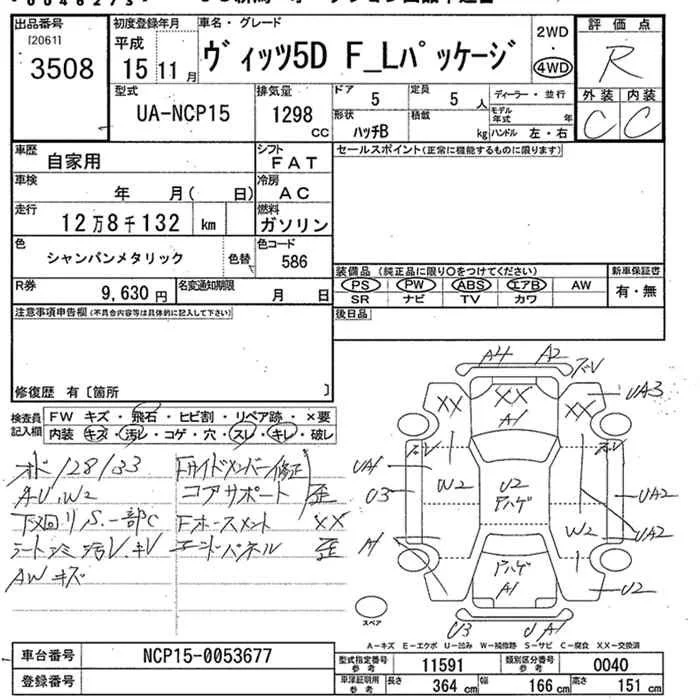 出品番号 初度登録年月 車名・グレード 2WD 評価点
[2061] 平成
3508 15年11月 ヴィッツ5D F_Lパッケージ 4WD R
型式 排気量 ドア 定員 ディーラー・並行 外装 内装
UA-NCP15 1298 CC 5 5人 モデル年式 年 C C
形状 積載
ハッチB kg ハンドル 左・右
車歴 自家用 シフト FAT セールスポイント(正常に機能するものに限ります)
車検 年 月( 日) 冷房 AC
走行 12万8千132 km 燃料 ガソリン
色 シャンパンメタリック 色替 色コード 586
装備品 (純正品に限り○をつけてください) 新車保証書
R券 9,630円 名変通知期限 月 日 PS PW ABS エアB AW 有・無
SR ナビ TV カワ
注意事項申告欄(不具合内容等は具体的に記入して下さい) 後日品
修復歴 有〔箇所 〕
検査員記入欄 FW キズ・飛石・ヒビ割・リペア跡・×要
内装 キズ・汚レ・コゲ・穴・スレ・キレ・破レ
A4 A2
XX XX A1 XX UA3
オド128133 Fサイドメンバー修正
AU,W2 コアサポート 歪
下廻りS.一部C XX
シート 汚レ.キレ エンドパネル 歪
AWキズ
UA1 U3 W2 U2 UA2
W2 UA2
A1 A1 U2
U3 U A1
スペア
A-キズ E-エクボ U-凹み W-補修跡 S-サビ C-腐食 XX-交換済
車台番号 NCP15-0053677 型式指定番号 参考 11591 類別区分番号 参考 0040
登録番号 車庫証明用 参考 長さ 364 cm 幅 166 cm 高さ 151 cm